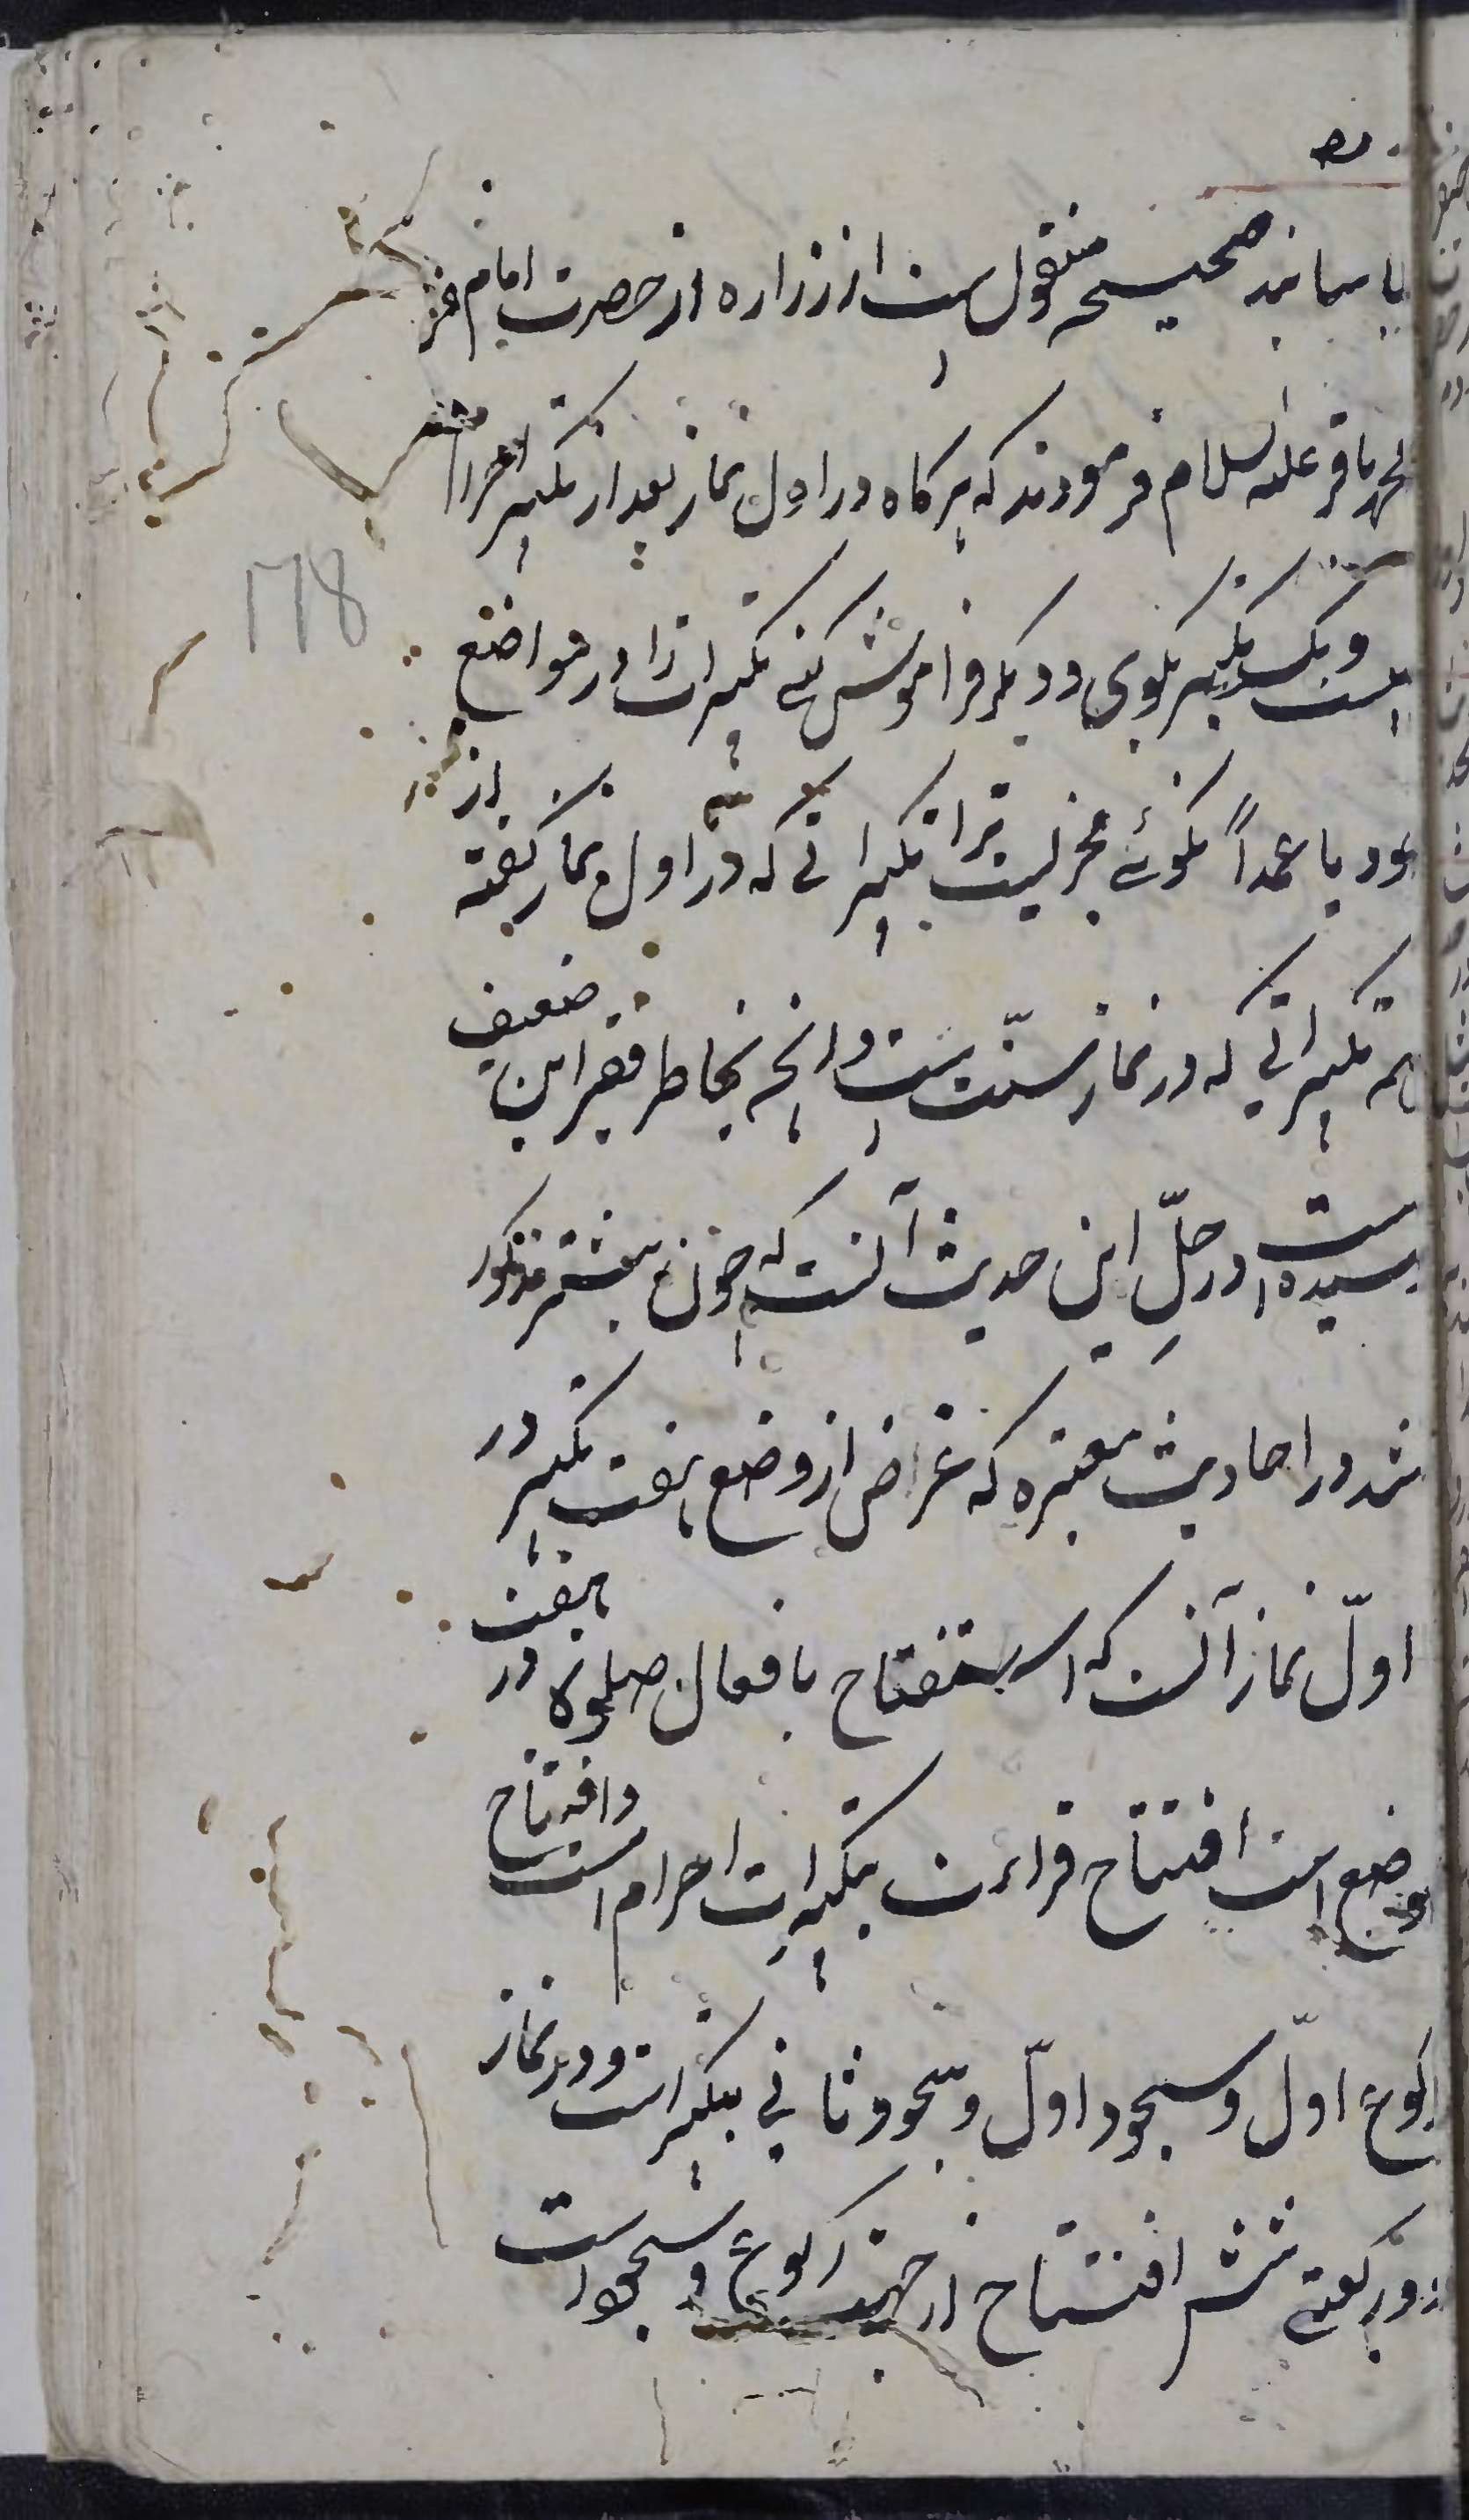 باسانید صحیحه منقول است از زراره از حضرت امام
محمد باقر علیه السلام فرمودند که هرگاه در اول نماز بعد از تکبیر احرام
بیست و یک تکبیر بگوی و دیگر فراموش کنی تکبیرات را در مواضع
خود یا عمداً نگوئی مجزیست ترا تکبیراتی که در اول نماز گفته از
همه تکبیراتی که در نماز سنّت است و انچه بخاطر فقیر این ضعیف
رسیده است در حلّ این حدیث آنست که چون پیشتر مذکور
شد در احادیث معتبره که غرض از وضع هفت تکبیر در
اوّل نماز آنست که استفتاح بافعال صلوة در هفت
موضع است افتتاح قراءت بتکبیرات احرام است و افتتاح
رکوع اوّل و سجود اوّل و سجود ثانی بتکبیراتست و در نماز
دو رکعتی شش افتتاح از جهت رکوع و سجود است
178